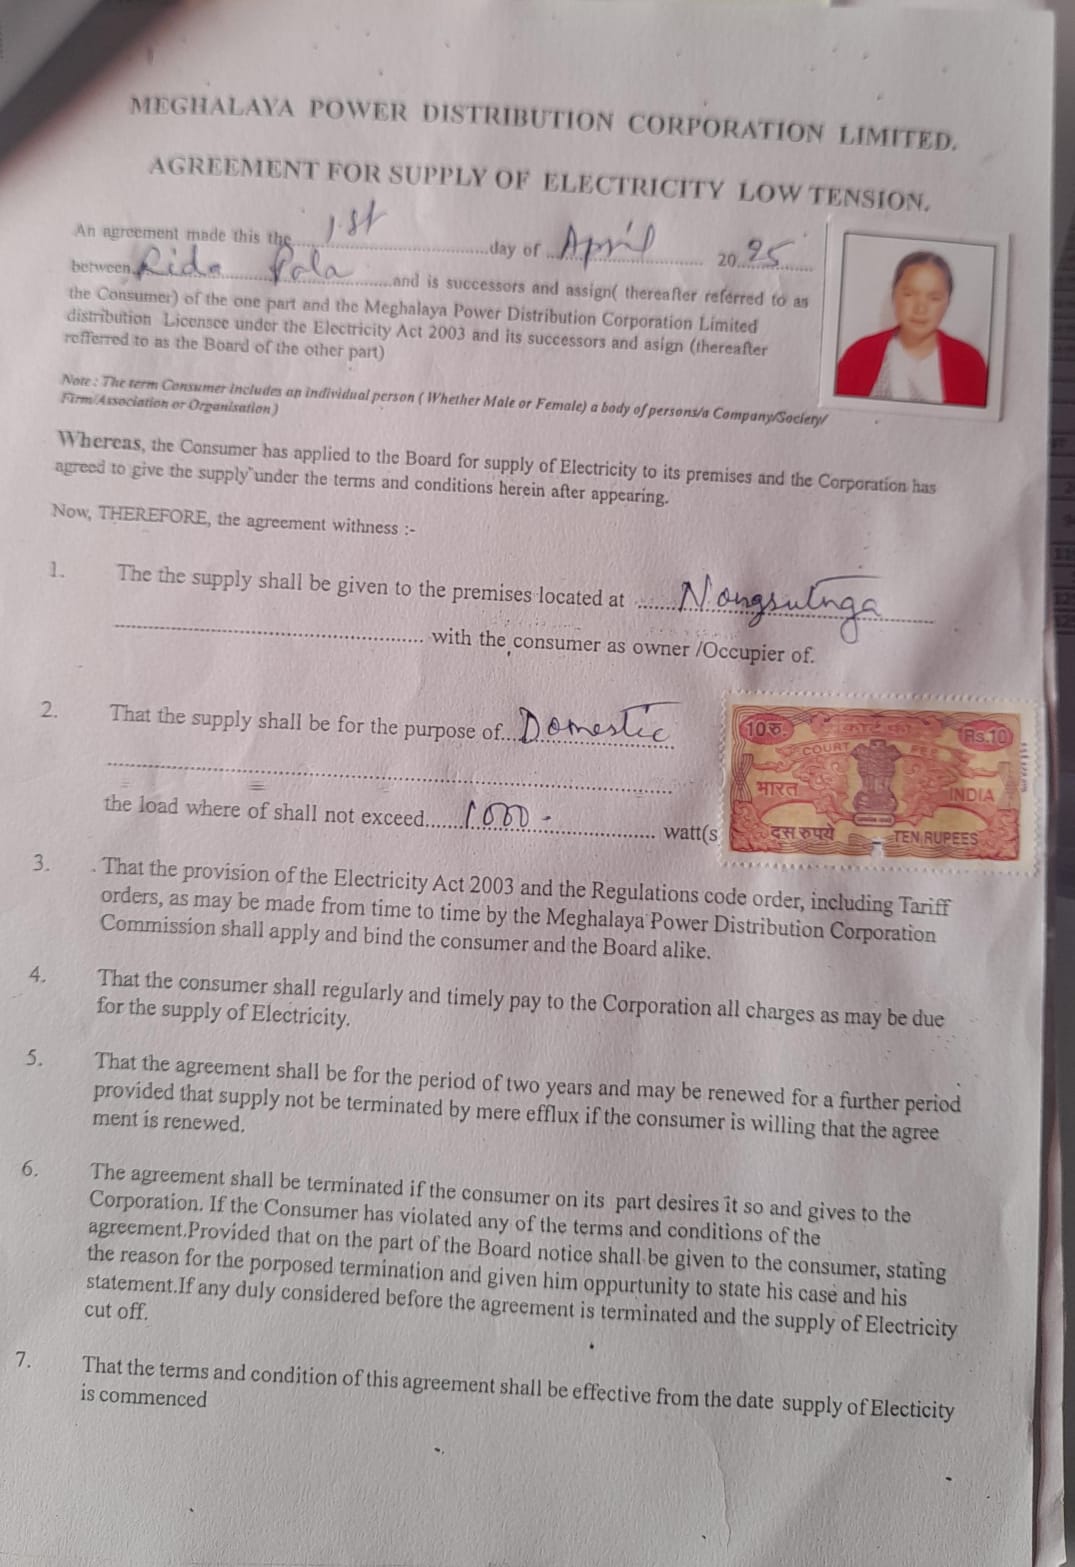 MEGHALAYA POWER DISTRIBUTION CORPORATION LIMITED.
AGREEMENT FOR SUPPLY OF ELECTRICITY LOW TENSION.
An agreement made this the 1st day of April 2025
between Rida Pala and is successors and assign( thereafter referred to as
the Consumer) of the one part and the Meghalaya Power Distribution Corporation Limited
distribution Licensee under the Electricity Act 2003 and its successors and asign (thereafter
refferred to as the Board of the other part)
Note : The term Consumer includes an individual person ( Whether Male or Female) a body of persons/a Company/Society/
Firm/Association or Organisation )
Whereas, the Consumer has applied to the Board for supply of Electricity to its premises and the Corporation has
agreed to give the supply under the terms and conditions herein after appearing.
Now, THEREFORE, the agreement withness :-
1. The the supply shall be given to the premises located at Nongsutnga
with the consumer as owner /Occupier of.
2. That the supply shall be for the purpose of Domestic
the load where of shall not exceed 1000 - watt(s
10 रु. कोर्ट फी Rs.10
COURT FEE
भारत INDIA
दस रुपये TEN RUPEES
3. That the provision of the Electricity Act 2003 and the Regulations code order, including Tariff
orders, as may be made from time to time by the Meghalaya Power Distribution Corporation
Commission shall apply and bind the consumer and the Board alike.
4. That the consumer shall regularly and timely pay to the Corporation all charges as may be due
for the supply of Electricity.
5. That the agreement shall be for the period of two years and may be renewed for a further period
provided that supply not be terminated by mere efflux if the consumer is willing that the agree
ment is renewed.
6. The agreement shall be terminated if the consumer on its part desires it so and gives to the
Corporation. If the Consumer has violated any of the terms and conditions of the
agreement.Provided that on the part of the Board notice shall be given to the consumer, stating
the reason for the porposed termination and given him oppurtunity to state his case and his
statement.If any duly considered before the agreement is terminated and the supply of Electricity
cut off.
7. That the terms and condition of this agreement shall be effective from the date supply of Electicity
is commenced